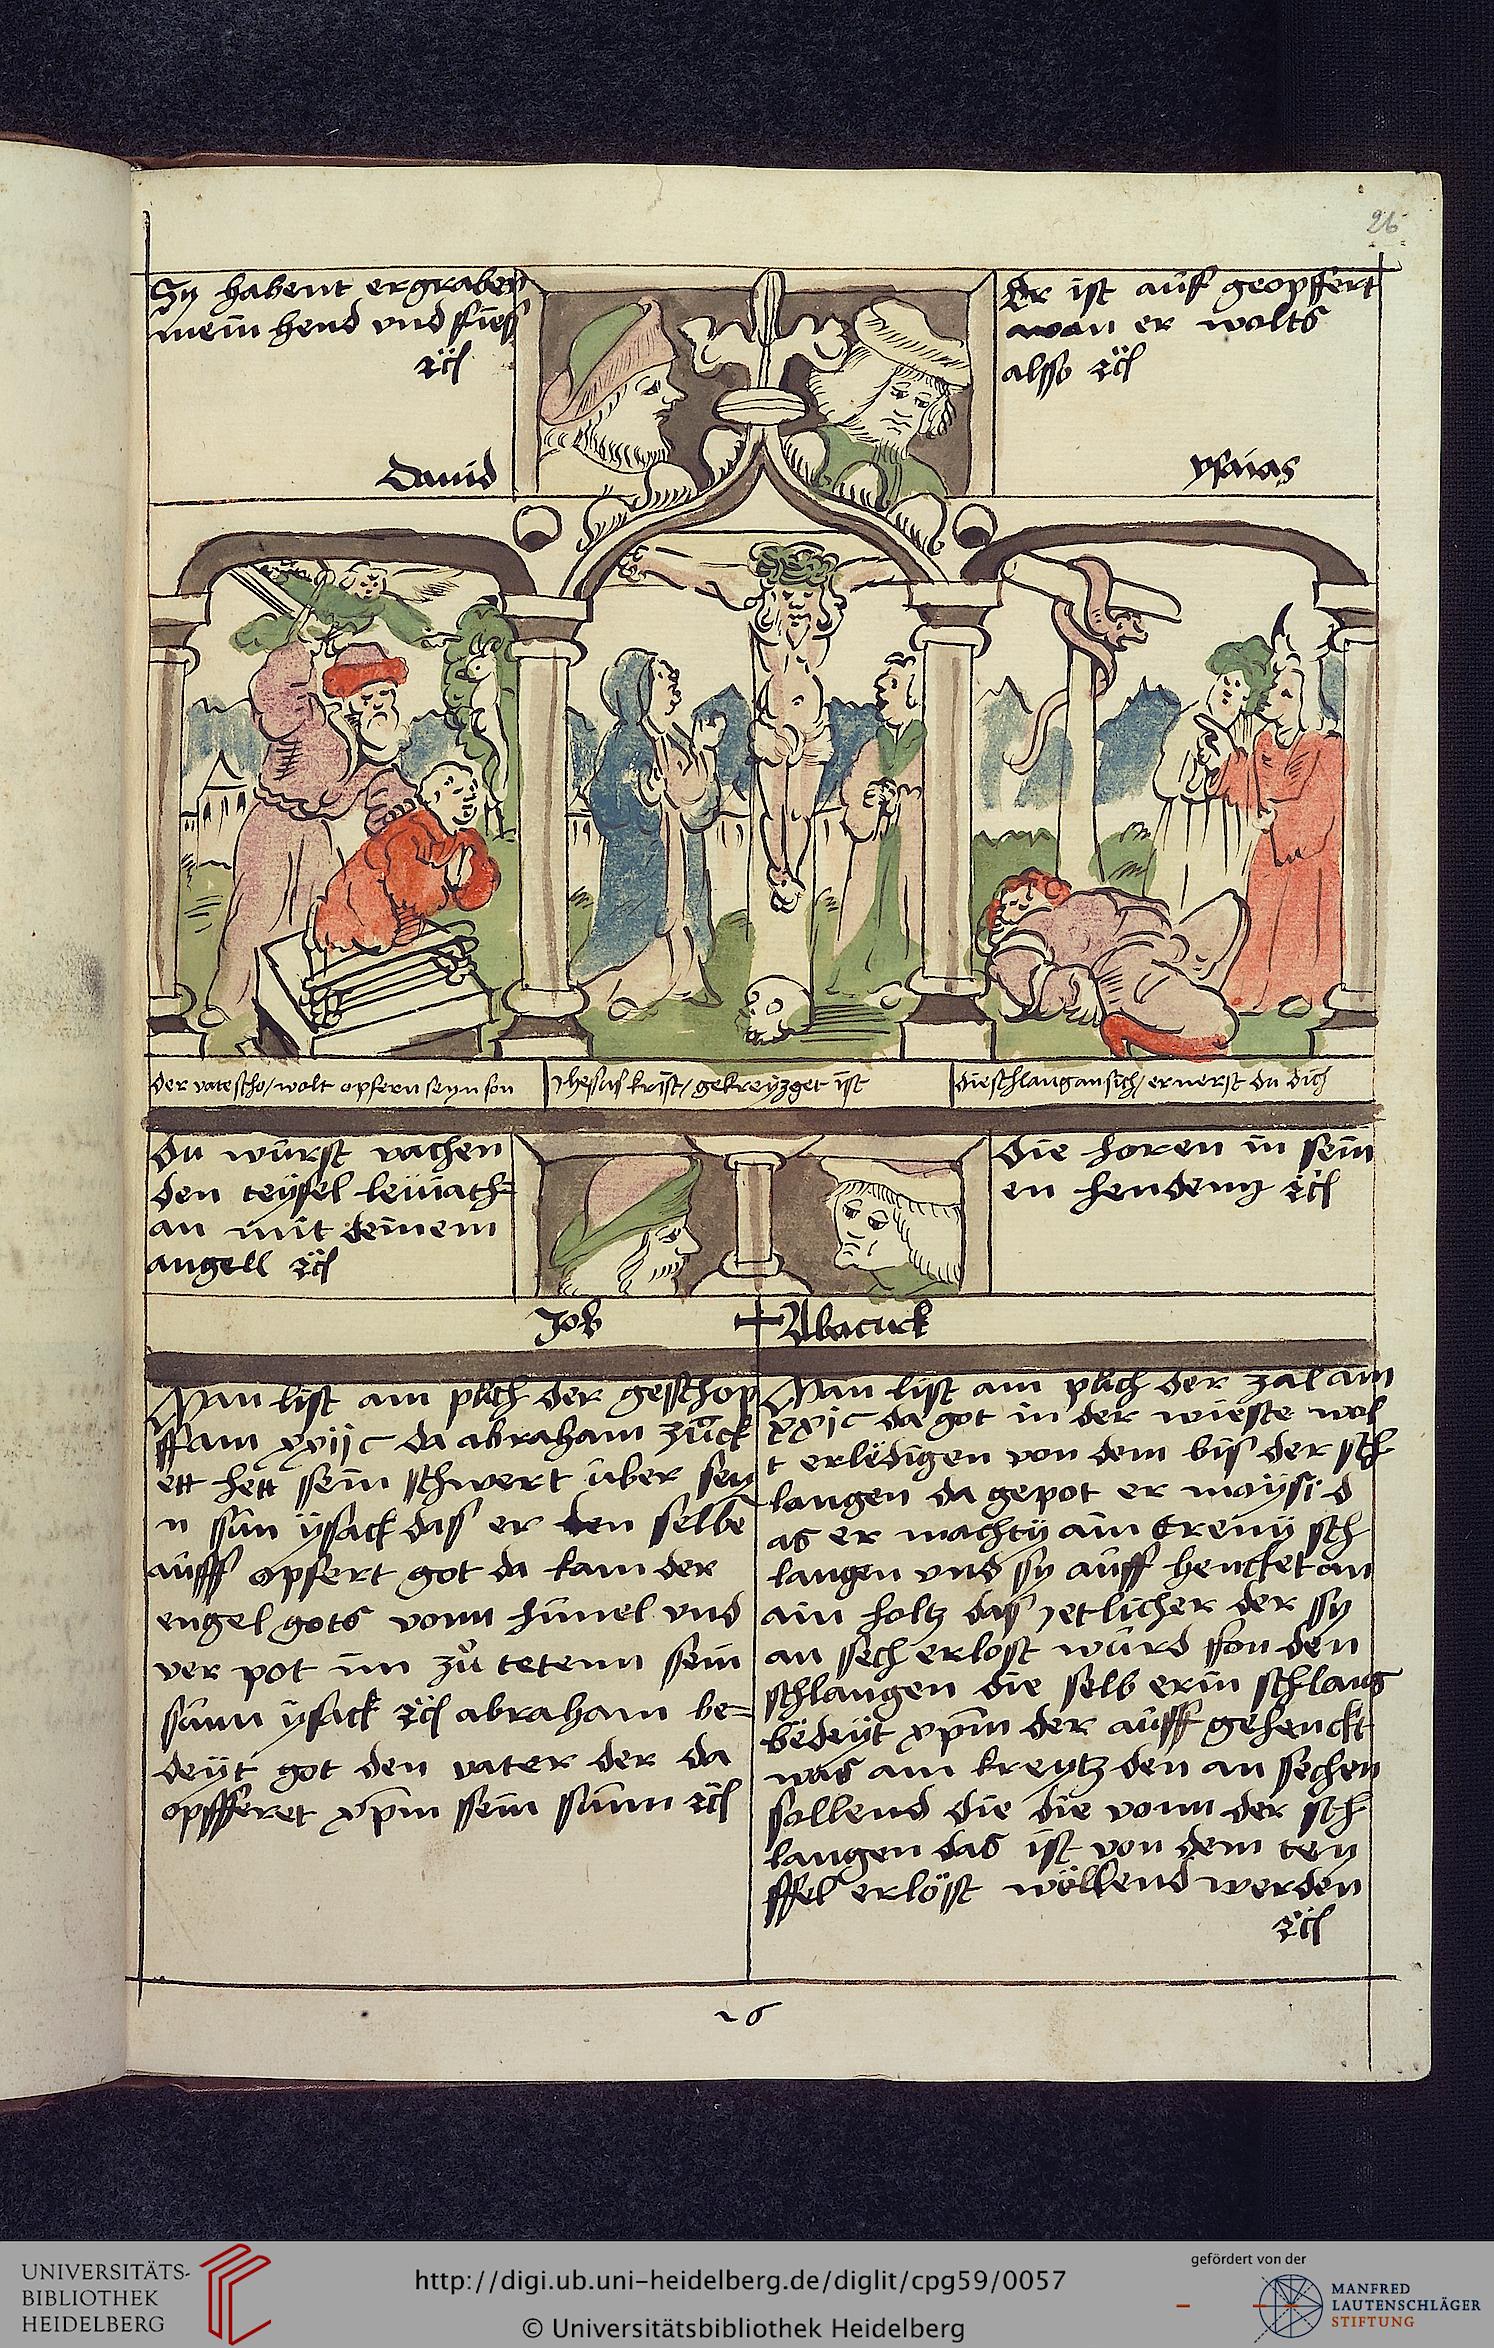 26
Sy habent ergraben
mein hend vnd fiess
rc̈
Dauid
Er ist auf geopffert
wan er wolts
alsso rc̈
ysaias
der vate scho/wolt opfern seyn son
Jhesus krist/gekreyzget ist
die schlang an sich/ernerst du dich
Du wurst vachen
den teyfel leuiath=
an mit deinem
angell rc̈
Die horen in sein
en henden rc̈
Job
Abacuck
Man list am puch der geschop
ff am xxijc da abraham zuck
ett hett sein schwert uber sey
n sun ÿsack das er den selbē
aufff opfert got da kam der
engel gots vonn himel vnd
ver pot im zů tetenn sein
sunn ÿsack rc̈ abraham be=
deÿt got den vater der da
opffferet xp̄m sein sunn rc̈
Man list am puch der zal am
xxjc da got in der wieste wol
t erledigen von dem bis der sch
langen da gepot er moÿsi d
as er machtÿ ain erinÿ sch
langen vnd sy auff hencket an
ain holtz das yetlicher der sy
an sech erlost wurd fon den
schlangen die selb erin schlang
bedeÿt xp̄m der aufff gehenckt
was am kreytz den an sechen
sollend die die vonn der sch
langen das ist von dem tey
ffel erlöst wöllend werden
rc̈
26
UNIVERSITÄTS-
BIBLIOTHEK
HEIDELBERG
http://digi.ub.uni-heidelberg.de/diglit/cpg59/0057
© Universitätsbibliothek Heidelberg
gefördert von der
MANFRED
LAUTENSCHLÄGER
STIFTUNG